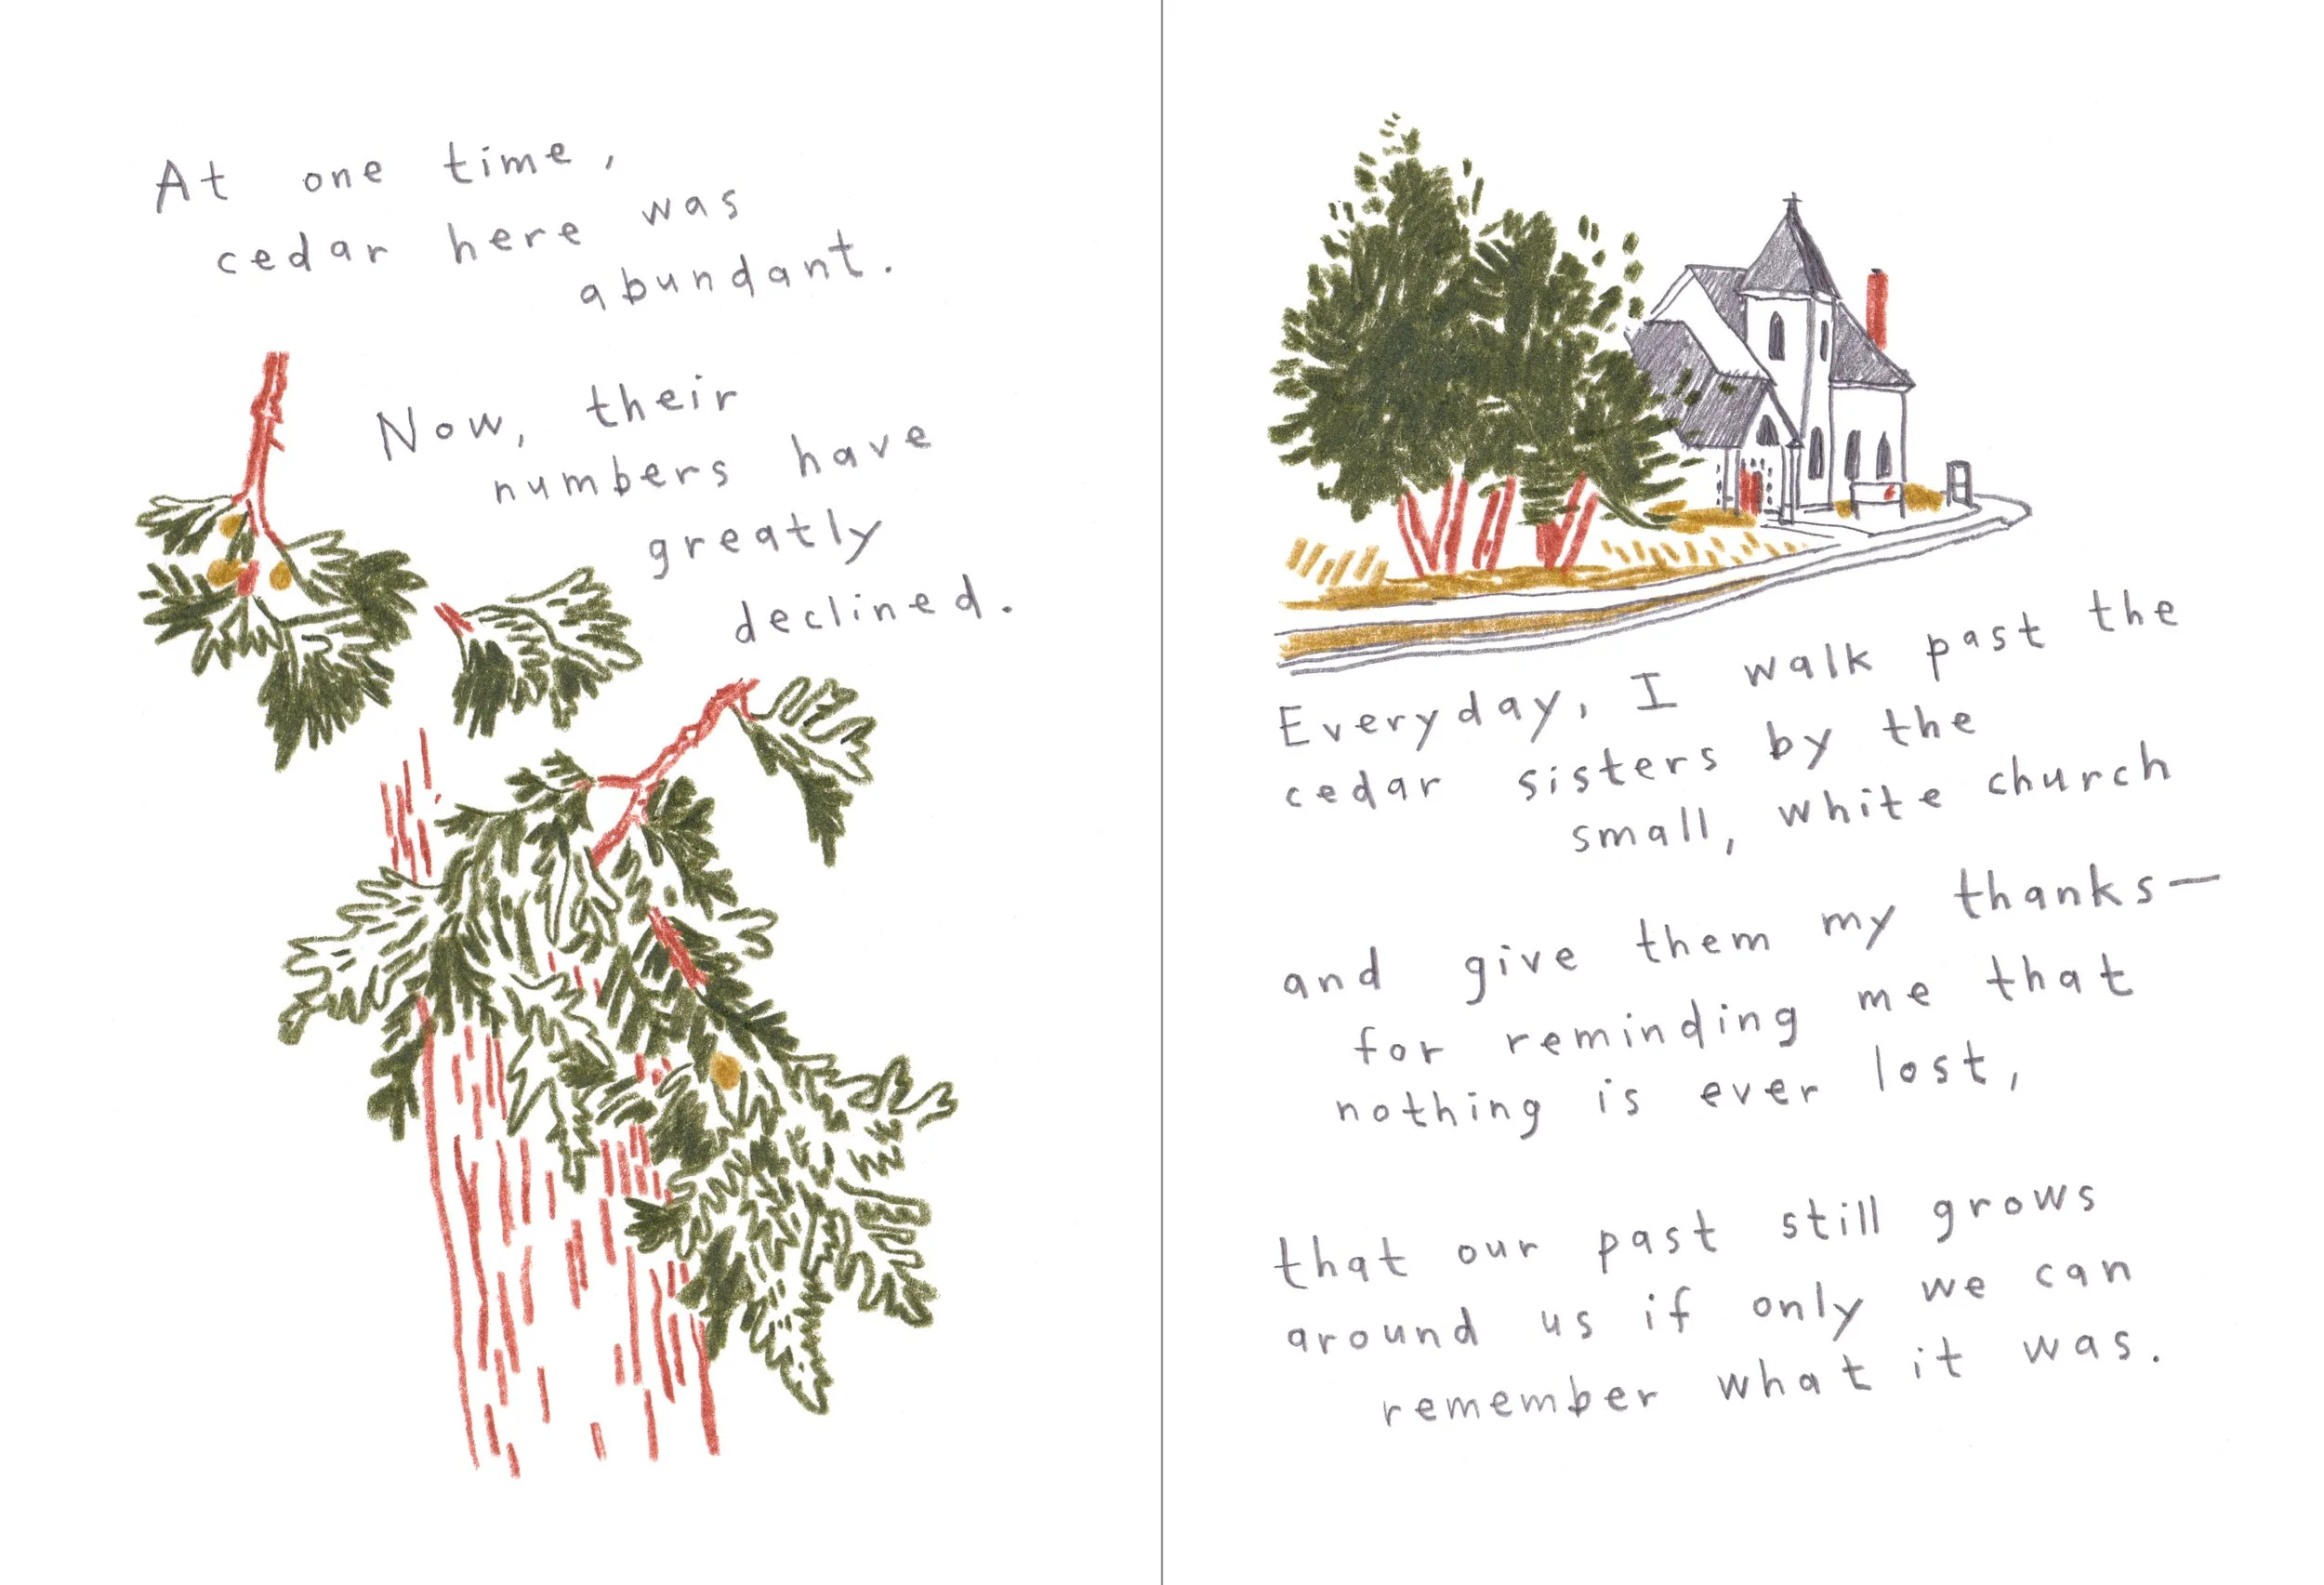 At one time,
cedar here was
abundant.
Now, their
numbers have
greatly
declined.
Everyday, I walk past the
cedar sisters by the
small, white church
and give them my thanks—
for reminding me that
nothing is ever lost,
that our past still grows
around us if only we can
remember what it was.